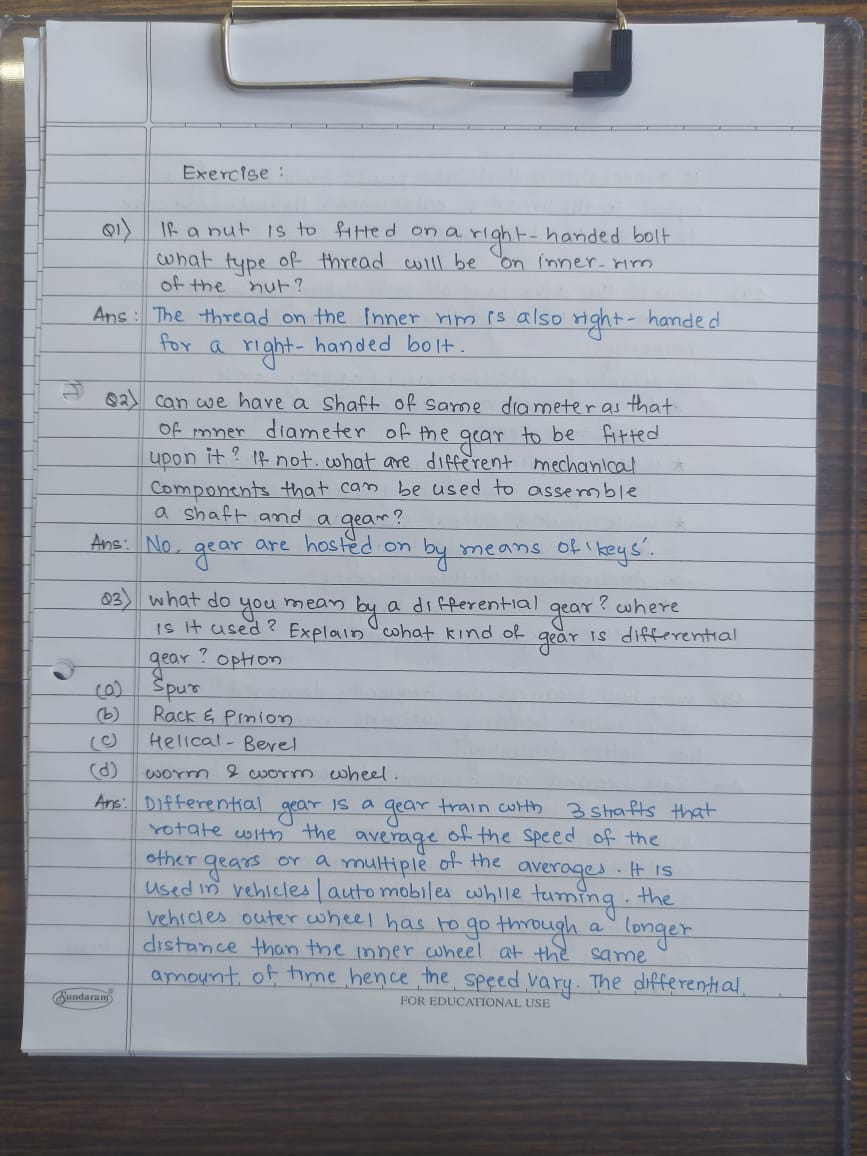 Exercise :
Q1) If a nut is to fitted on a right-handed bolt
what type of thread will be on inner-rim
of the nut?
Ans: The thread on the inner rim is also right-handed
for a right-handed bolt.
Q2) can we have a shaft of same diameter as that
of inner diameter of the gear to be fitted
upon it? If not. what are different mechanical
components that can be used to assemble
a shaft and a gear?
Ans: No, gear are hosted on by means of 'keys'.
Q3) what do you mean by a differential gear? where
is it used? Explain what kind of gear is differential
gear? option
(a) Spur
(b) Rack & Pinion
(c) Helical - Bevel
(d) worm & worm wheel.
Ans: Differential gear is a gear train with 3 shafts that
rotate with the average of the speed of the
other gears or a multiple of the averages. It is
used in vehicles/automobiles while turning. the
vehicles outer wheel has to go through a longer
distance than the inner wheel at the same
amount of time hence the speed vary. The differential
Sundaram
FOR EDUCATIONAL USE